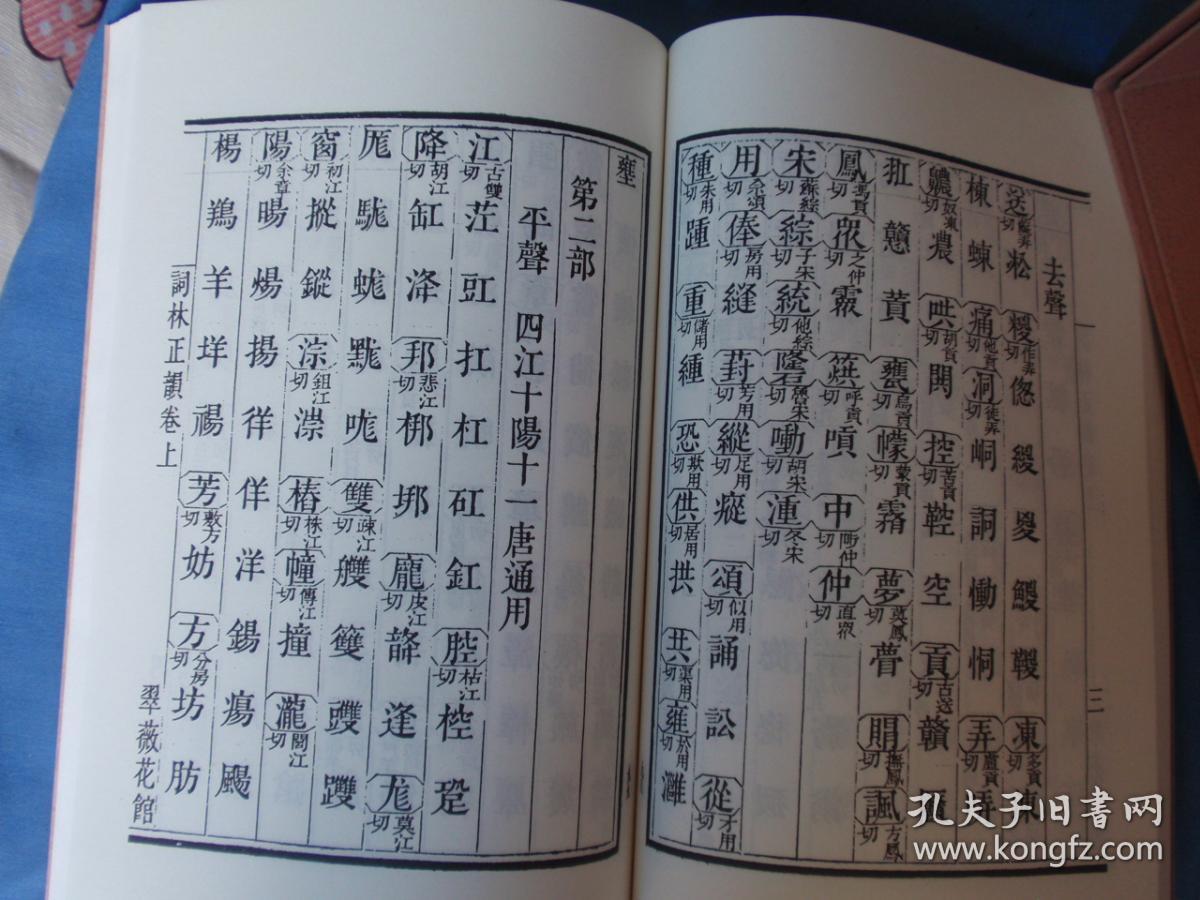 去聲
送蘇弄切 㮸 糉作弄切 傯 緵 㚇 鯼 鞚 凍多貢切 涷
棟 蝀 痛他貢切 洞徒弄切 峒 詷 慟 恫 弄盧貢切
齈奴凍切 癑 哄胡貢切 鬨 控苦貢切 鞚 空 貢古送切 贛
戇 蕡 甕烏貢切 幪蒙貢切 霿 夢莫鳳切 瞢 賵撫鳳切 諷方鳳切
鳳馮貢切 衆之仲切 烘呼貢切 嗊 中陟仲切 仲直衆切
宋蘇綜切 綜子宋切 統他綜切 隆魯宋切 胡宋切 湩冬宋切
用余頌切 俸房用切 縫 葑芳用切 縱足用切 瘲 頌似用切 誦 訟 從才用切
種朱用切 踵 重儲用切 緟 恐欺用切 供居用切 拱 共渠用切 雍於用切 灉
壅
第二部
平聲 四江十陽十一唐通用
江古雙切 茳 豇 扛 杠 矼 釭 腔枯江切 椌 跫
降胡江切 缸 洚 邦悲江切 梆 垹 龐皮江切 逄 尨莫江切
厖 駹 蛖 咙 雙疎江切 艭
窗初江切 摐 鏦 淙鉏江切 漴 樁株江切 幢傳江切 撞 瀧閭江切
陽余章切 暘 煬 揚 徉 佯 洋 鍚 瘍 颺
楊 鸉 羊 垟 禓 芳敷方切 妨 方分房切 坊 肪
詞林正韻卷上
翠薇花館
三
孔夫子旧书网
www.kongfz.com